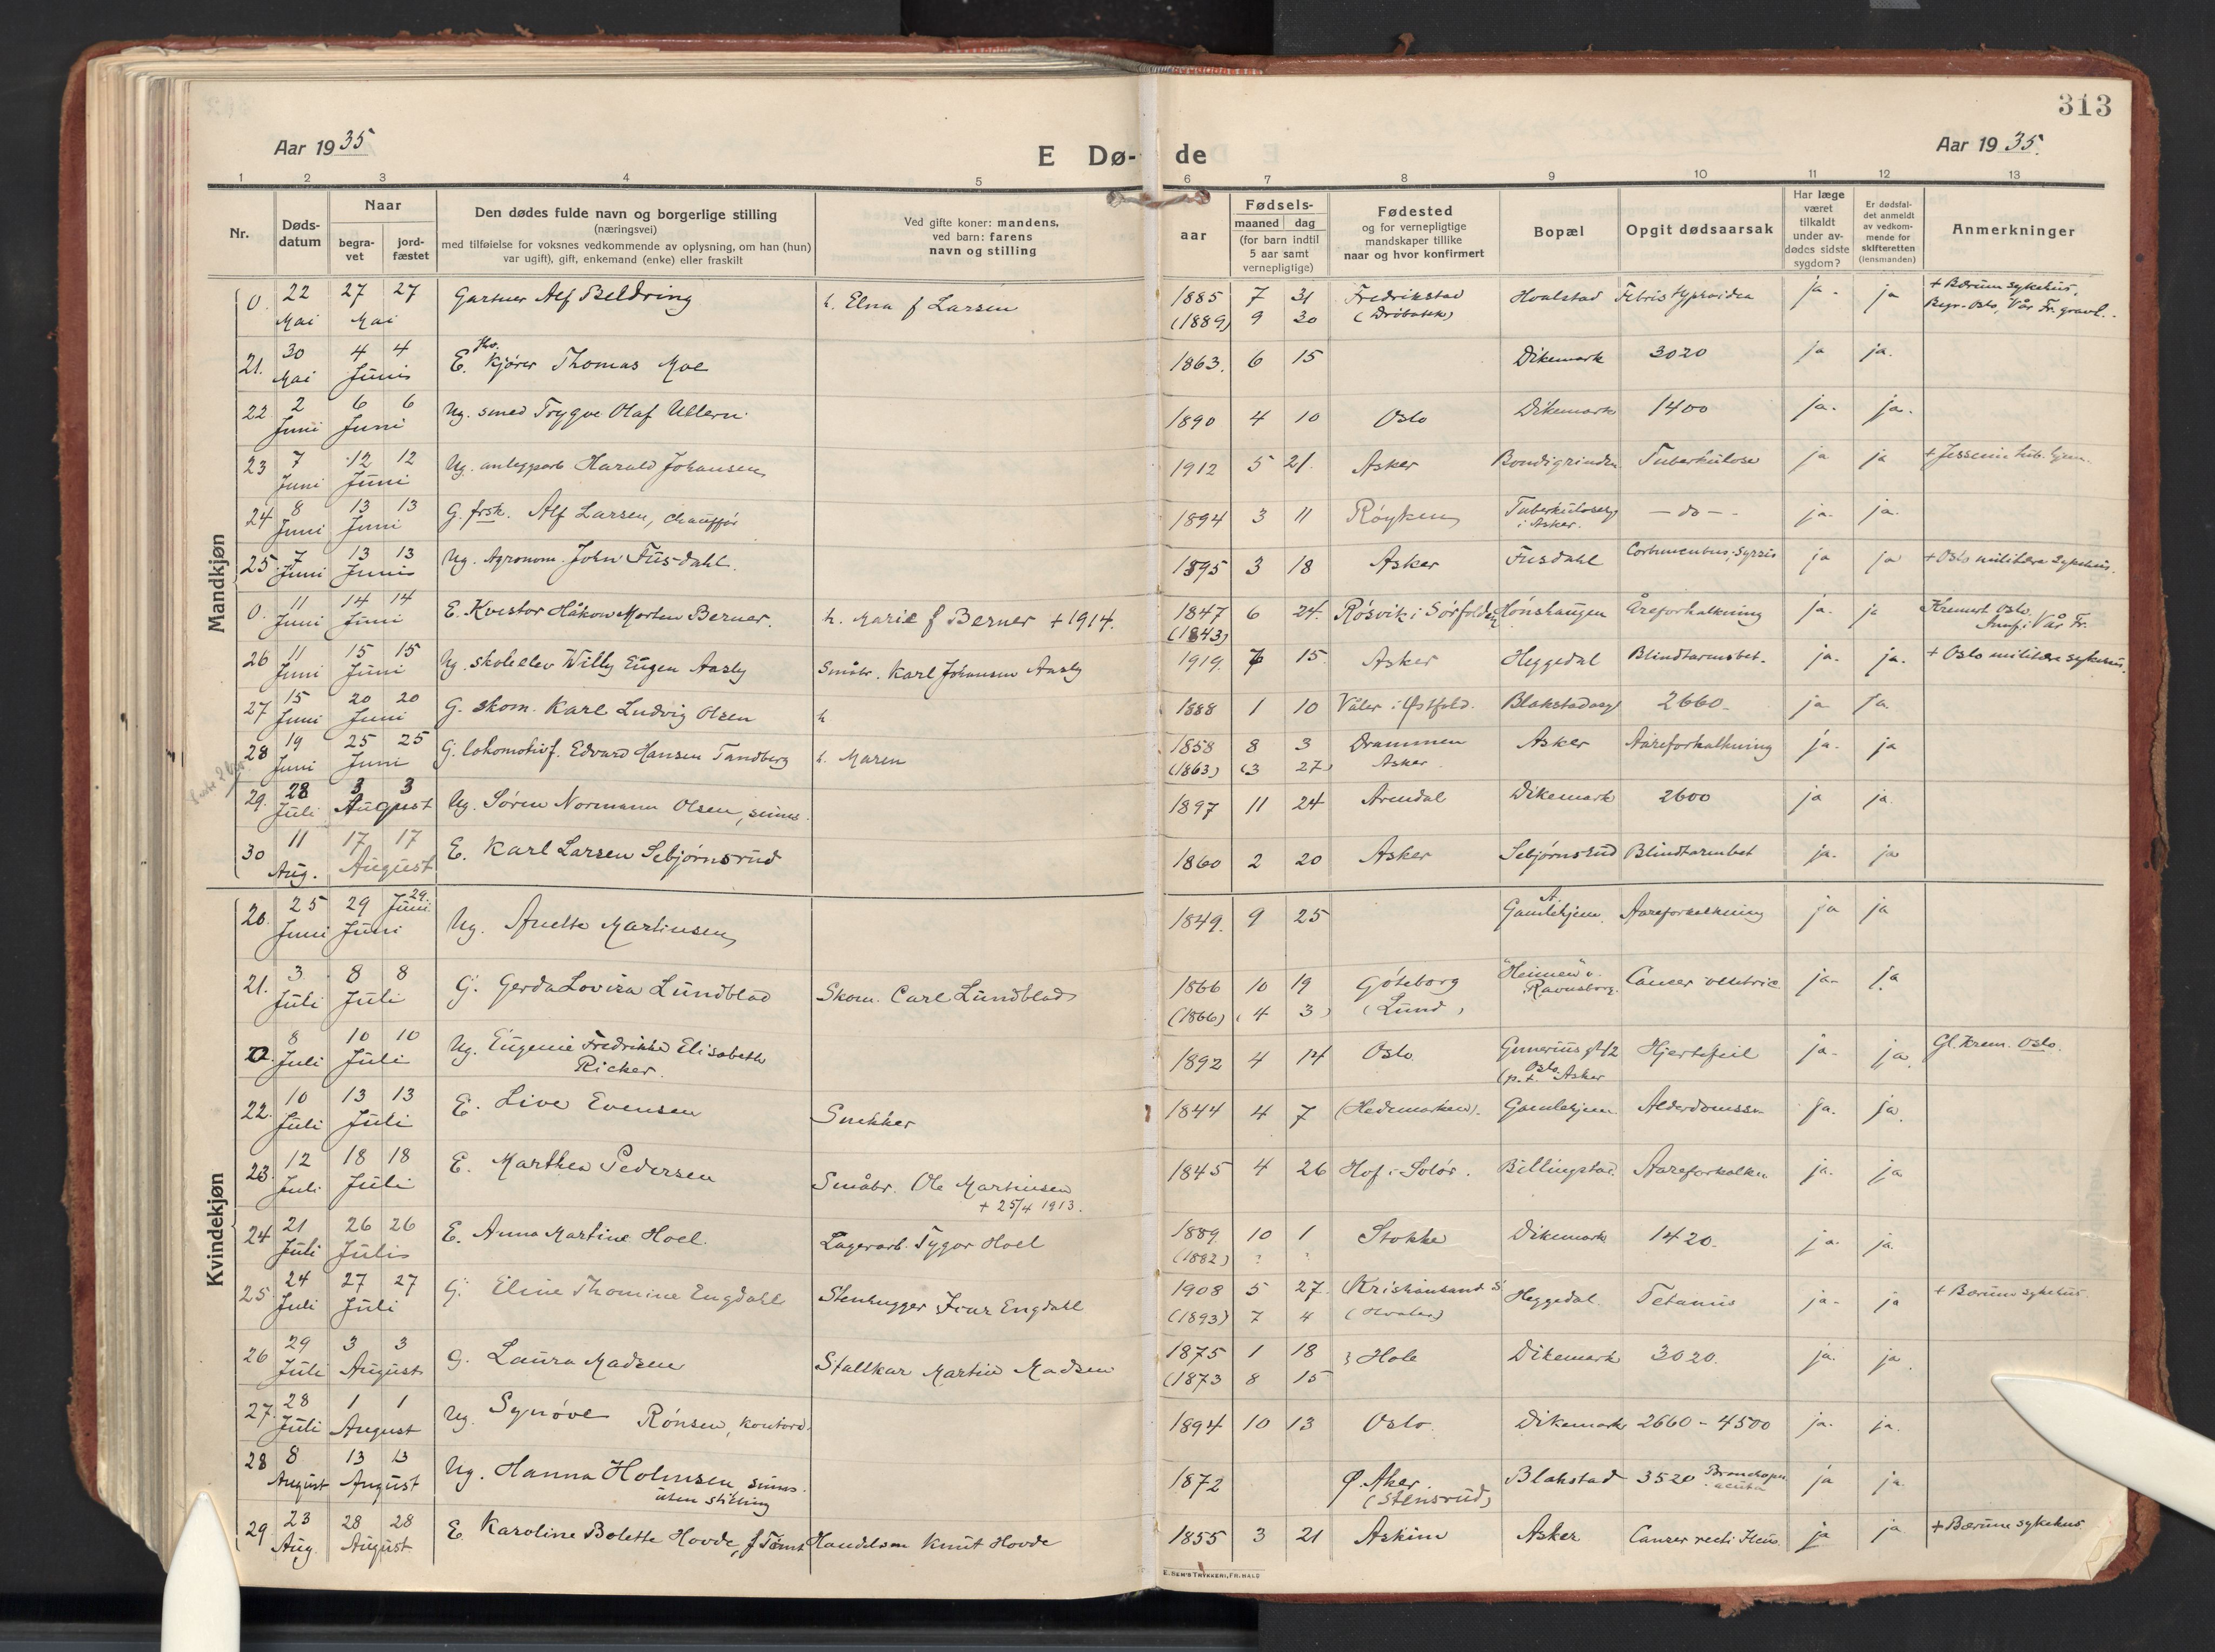 313
Aar 1935
E Dø-de
Aar 1935.
1 2 3 4 5 6 7 8 9 10 11 12 13
Nr.
Døds-
datum
Naar
begra-
vet
jord-
fæstet
Den dødes fulde navn og borgerlige stilling
(næringsvei)
med tilføielse for voksnes vedkommende av oplysning, om han (hun)
var ugift), gift, enkemand (enke) eller fraskilt
Ved gifte koner: mandens,
ved barn: farens
navn og stilling
Fødsels-
aar
maaned dag
(for barn indtil
5 aar samt
vernepligtige)
Fødested
og for vernepligtige
mandskaper tillike
naar og hvor konfirmert
Bopæl
Opgit dødsaarsak
Har læge
været
tilkaldt
under av-
dødes sidste
sygdom?
Er dødsfal-
det anmeldt
av vedkom-
mende for
skifteretten
(lensmanden)
Anmerkninger
Mandkjøn
0. 22 27 27 Gartner Alf Beldring h. Elna f Larsen 1885 7 31 Fredrikstad Hvalstad Febris typhoidea ja. ja + Bærum sykehus.
Mai Mai (1889) 9 30 (Drøbakk) Begr. Oslo, Vår Fr. gravl.
21. 30 4 4 E. Kjører Thomas Moe 1863. 6 15 Dikemark 3020 ja ja.
Mai Juni
22. 2 6 6 Ug. smed Trygve Olaf Ullern 1890 4 10 Oslo Dikemark 1400 ja. ja.
Juni Juni
23 7 12 12 Ug. anleggsarb Harald Johansen 1912 5 21. Asker Bondigrinden Tuberkulose ja ja
Juni Juni
24 8 13 13 G. frsk. Alf Larsen, chauffør 1894 3 11 Røyken Tuberkuloseg. - do - ja. ja.
Juni Juni i Asker.
25 7 13 13 Ug. Agronom. John Fusdahl. 1895 3 18 Asker Fusdahl ja ja + Oslo militære sykehus.
Juni Juni
0. 11 14 14 E. Kvestor Håkon Morten Berner. h. Marie f Berner + 1914. 1847 6 24. Røsvik i Sørfolden Hønshaugen Åreforkalkning ja. ja Kremert Oslo
Juni Juni (1843) Vår Fr.
26 11 15 15 Ug. skoleelev Willy Eugen Aasly Småbr. Karl Johansen Aasly 1919. 7 15. Asker Heggedal Blindtarmsbet. ja. ja. + Oslo militære sykehus.
Juni Juni
27 15 20 20 G. skom. Karl Ludvig Olsen h 1888 1 10 Våler i Østfold. Blakstadasyl 2660 ja ja.
Juni Juni
28 19 25 25 G. lokomotivf. Edvard Hansen Tandberg h. Maren 1858 8 3 Drammen Asker Aareforkalkning ja. ja
Juni Juni (1863) (3 27) Asker
29. 28 3 3 Ug. Søren Normann Olsen, sinns. 1897 11 24 Arendal Dikemark 2600 ja ja.
Juli August
30 11 17 17 E. Karl Larsen Sebjørnsrud 1860 2 20 Asker Sebjørnsrud Blindtarmbet ja. ja
Aug. August
Kvindekjøn
20. 25 29 29. Ug. Anette Martinsen 1849. 9 25 A. Gamlehjem. Aareforkalkning ja ja
Juni Juni Juni
21. 3 8 8 G. Gerda Lovisa Lundblad Skom. Carl Lundblad 1866 10 19 Gøteborg "Heimen" v. Cancer ventric ja. ja
Juli Juli (1866) (4 3) (Lund) Ravnsborg.
22. 8 10 10 Ug. Eugenie Fredrikke Elisabeth 1892 4 14 Oslo Gunerius gt 12 Hjertefeil ja. ja. Gl. Krem. Oslo.
Juli Juli Ricker. Oslo
(p.t. Asker
22. 10 13 13 E. Live Evensen Snekker 1844 4 7 (Hedemarken). Gamlehjem Alderdomssv. ja. ja.
Juli Juli
23. 12 18 18 E. Marthea Pedersen Småbr. Ole Martinsen 1845 4 26 Hof i Solør. Billingstad. Aareforkalkn ja. ja
Juli Juli + 25/4 1913.
24 21 26 26 E. Anna Martine Hoel Lagerarb. Tygor Hoel 1889. 10 1 Stokke Dikemark 1420. ja. ja.
Juli Juli (1882) ? ?
25 24 27 27 G. Eline Thomine Engdahl Stenhugger Ivar Engdahl 1908 5 27. Kristiansand S Heggedal. Tetanus ja. ja + Bærum sykehus.
Juli Juli (1893) 7 4 (Hvaler)
26 29 3 3 G. Laura Madsen Stallkar Martin Madsen 1875 1 18 } Hole Dikemark 3020. ja. ja.
Juli August (1873 8 15
27. 28 1 1 Ug. Synøve Rønsen, kontord. 1894 10 13 Oslo. Dikemark 2660 - 4500 ja. ja.
Juli August
28 8 13 13 Ug. Hanna Holmsen sinns. 1872 Ø. Aker Blakstad 3520 Bronchopn. ja ja.
August August uten stilling (Stensrud) acuta
29 23 28 28 E Karoline Bolette Hovde, f Tømt Handelsm Knut Hovde 1855 3 21 Askim Asker Cancer recti Ileus. ja ja. + Bærum sykehus
Aug. August.
E. SEM'S TRYKKERI, FR. HALD